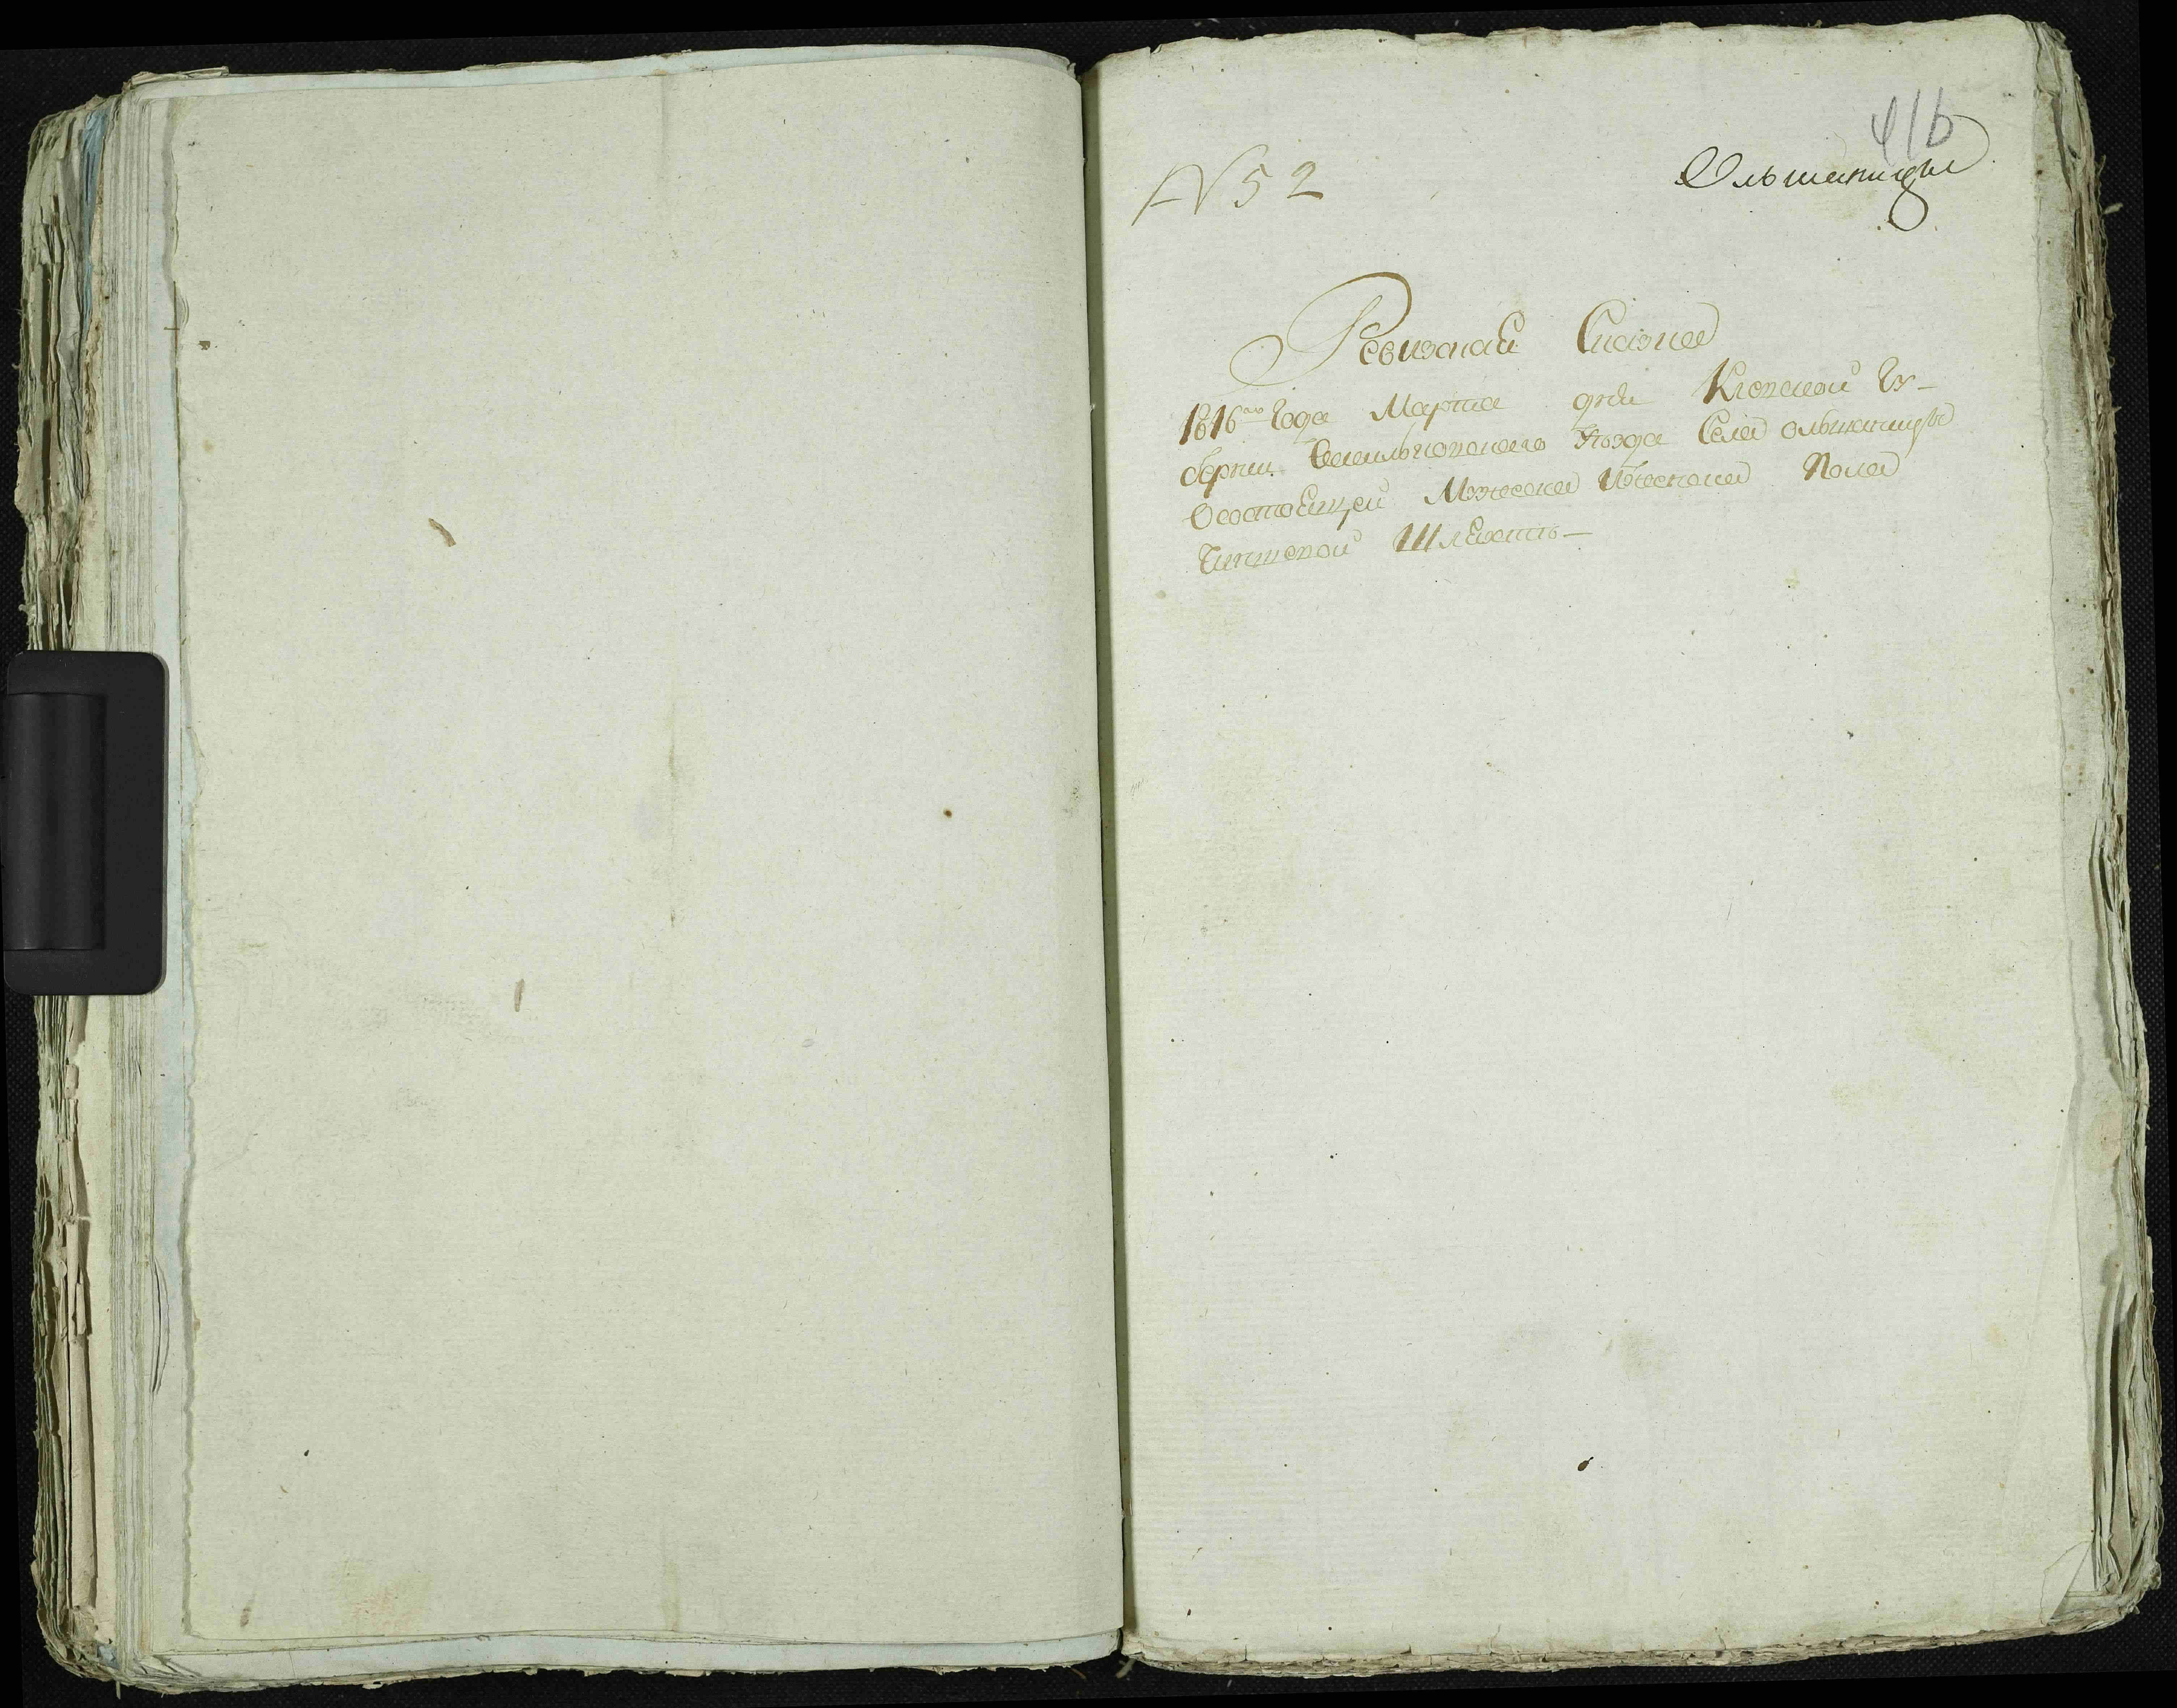 416
N 52
Ольшаницы
Ревизская Сказка
1816го Года Марта дня Киевской Гу-
бернии Васильковскаго Уезда Села ольшаницы
Осостоящей Мужеска Ижеснска Пола
Чиншевой Шляхты—